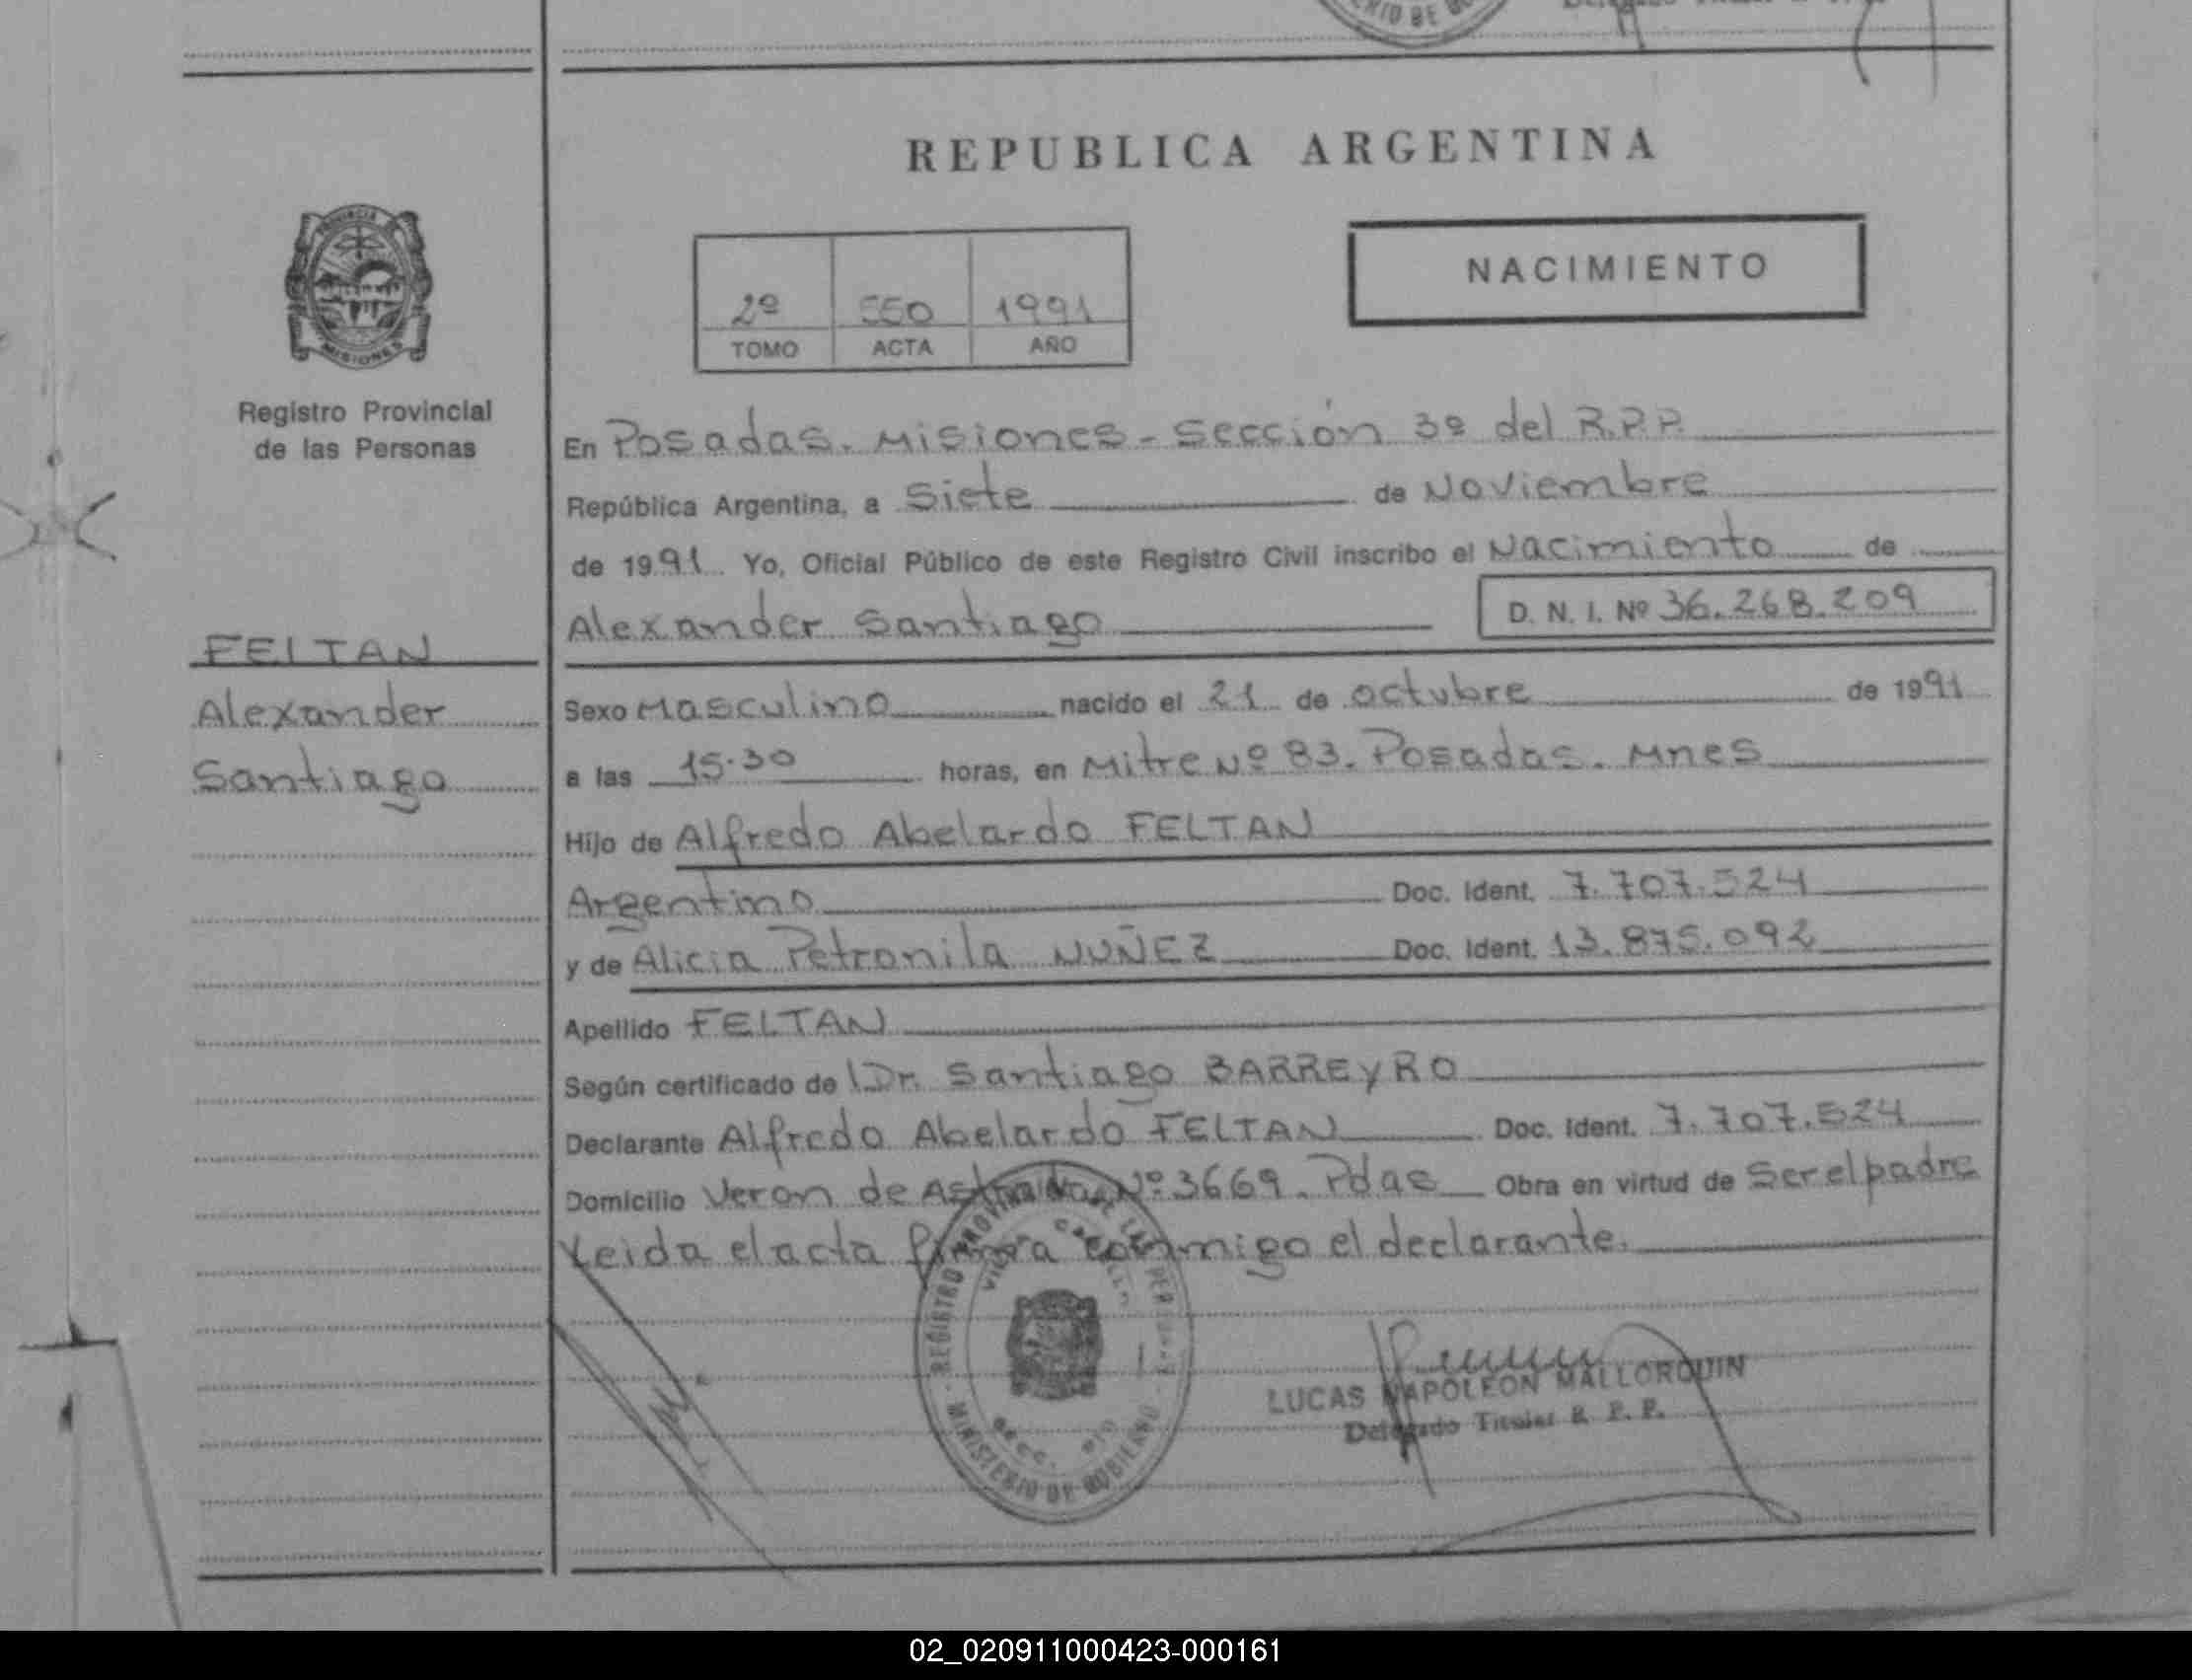 REPUBLICA ARGENTINA
NACIMIENTO
2º 550 1991
TOMO ACTA AÑO
PROVINCIA
MISIONES
Registro Provincial
de las Personas
En Posadas. Misiones - Sección 3º del R.P.P.
República Argentina, a Siete de Noviembre
de 1991 Yo, Oficial Público de este Registro Civil inscribo el Nacimiento de
Alexander Santiago D. N. I. Nº 36.268.209
FELTAN
Alexander
Santiago
Sexo Masculino nacido el 21 de octubre de 1991
a las 15.30 horas, en Mitre Nº 83. Posadas. Mnes
Hijo de Alfredo Abelardo FELTAN
Argentino Doc. Ident. 7.707.524
y de Alicia Petronila NUÑEZ Doc. Ident. 13.875.092
Apellido FELTAN
Según certificado de Dr. Santiago BARREYRO
Declarante Alfredo Abelardo FELTAN Doc. Ident. 7.707.524
Domicilio Veron de Astrada Nº 3669. Pdas Obra en virtud de Ser el padre
Leida el acta firma conmigo el declarante.
REGISTRO PROVINCIAL DE LAS PERSONAS
MINISTERIO DE GOBIERNO
LUCAS NAPOLEON MALLORQUIN
Delegado Titular R. P. P.
02_020911000423-000161